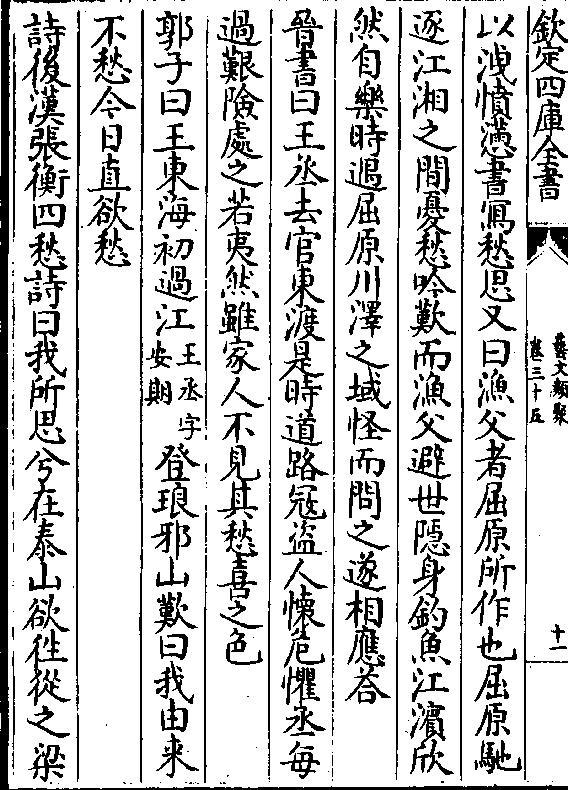 欽定四庫全書
藝文類聚
卷三十五
十一
以洩憤懣書寫愁思又曰漁父者屈原所作也屈原馳
逐江湘之間憂愁吟歎而漁父避世隱身釣魚江濱欣
然自樂時過屈原川澤之域怪而問之遂相應答
晉書曰王丞去官東渡是時道路寇盜人懷危懼丞每
過艱險處之若夷然雖家人不見其愁喜之色
郭子曰王東海初過江王丞字安期登琅邪山歎曰我由来
不愁今日直欲愁
詩後漢張衡四愁詩曰我所思兮在泰山欲徃從之梁